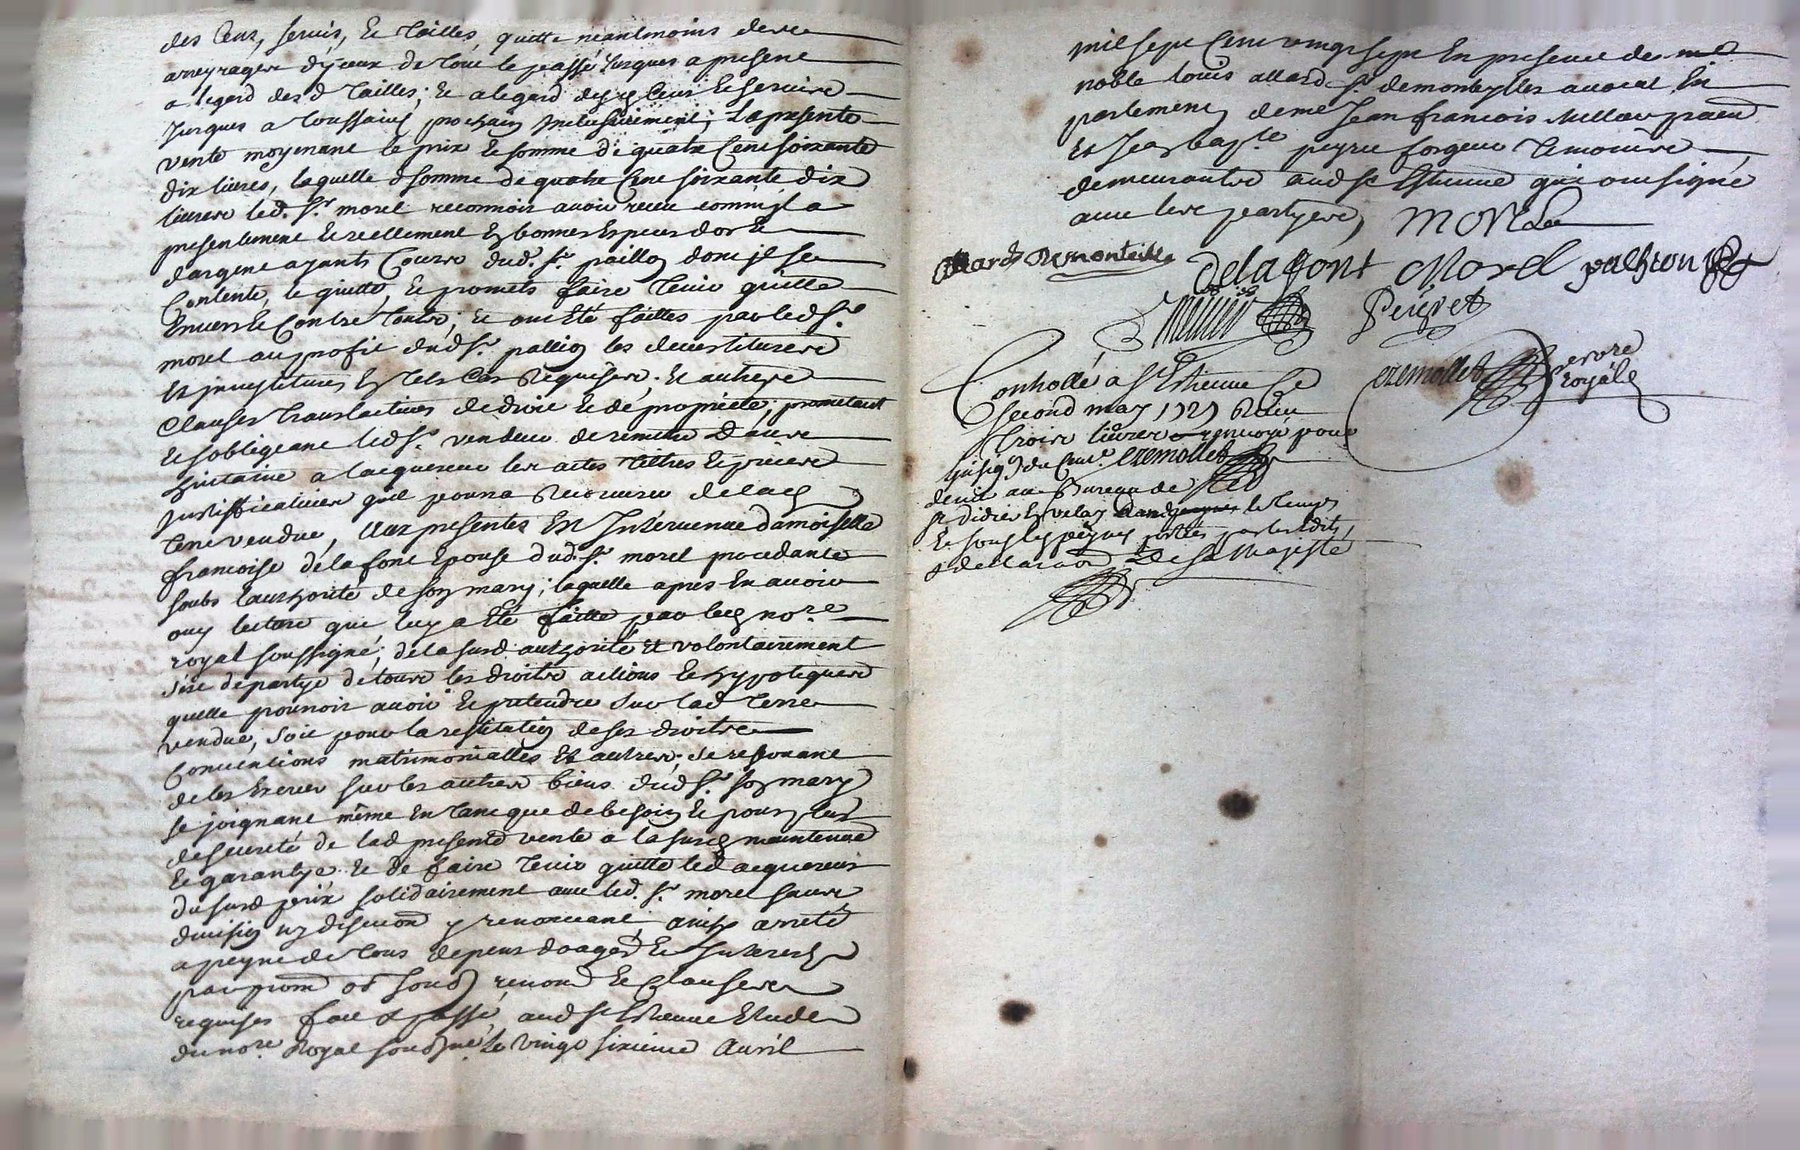 des Cens, servis, et Tailles, quitte neantmoins desd
arreyrages d'jceux de tout le passé Jusques a present
a legard desd Tailles; et a legard desd Cens et servis
Jusques a toussaint prochain Inclusivement; La presente
vente moyenant le prix et somme de quatre Cent soixante
dix livres, laquelle d somme de quatre Cent soixante dix
livres led. Sr morel reconnoit avoir receu comm'jl a
presentement et reellement en bonnes especes d'or et
d'argent ayants Cours dud. Sr paillon dont jl se
Contente, le quitte, et promets faire tenir quitte
Envers et Contre touts; et ont Eté faittes par led Sr
morel au profit dud Sr. les devestitures
et jnvestitures En tels Cas Requises. Et autres
Clauses translatives de droit et de propriete; promettant
et sobligeant led Sr. vendeur de remettre
a lacquereur les actes tiltres et pieces
Justifficatives quil pourra Recouvrer de lad
terre vendue, Aux presentes Est Intervenue damoiselle
francoise delafont Epouse dud. Sr. morel procedante
soubs lauthorité de son mary; laquelle apres En avoir
ouy lecture que luy a Eté faitte par led nore
royal soussigné; de la susd authorité et volontairement
s'est departye de touts les droits actions et hypoteques
quelle pouvoit avoir et pretendre sur lad terre
vendue, soit pour la restitution de ses droits
Conventions matrimonialles et autres; se reservant
de les Exercer sur les autres biens dud Sr. son mary
se joignant même En tant que de besoin et pour plus
de seureté de lad presente vente a la susd maintenue
et garantye et de faire tenir quitte led acquereur
du susd prix solidairement avec led. Sr. morel sans
division ny discution y renonceant; ainsy arreté
a peyne de tous depens domages et Interests
par prom ob soub renon et Clauses
requises fait & passé aud St Estienne Etude
du nore. Royal soussigné Le vingt sixieme Avril
mil sept Cent vingt sept En presence de me
noble louis allard Sr demonteylles avocat En
parlement de me Jean francois
et Jean bapte peyret forgeur temoins
demeurants aud St Estienne qui ont signé
avec les partyes
allard Demonteille delafont Morel
Peiret
Controllé a St Estienne Ce
second may 1727 Receu
trois livres renvoyé pour
au Bureau de
St didier En velay le temps
et sous les peynes portées par les Edits
& declaraon de sa Majesté
nore
royal